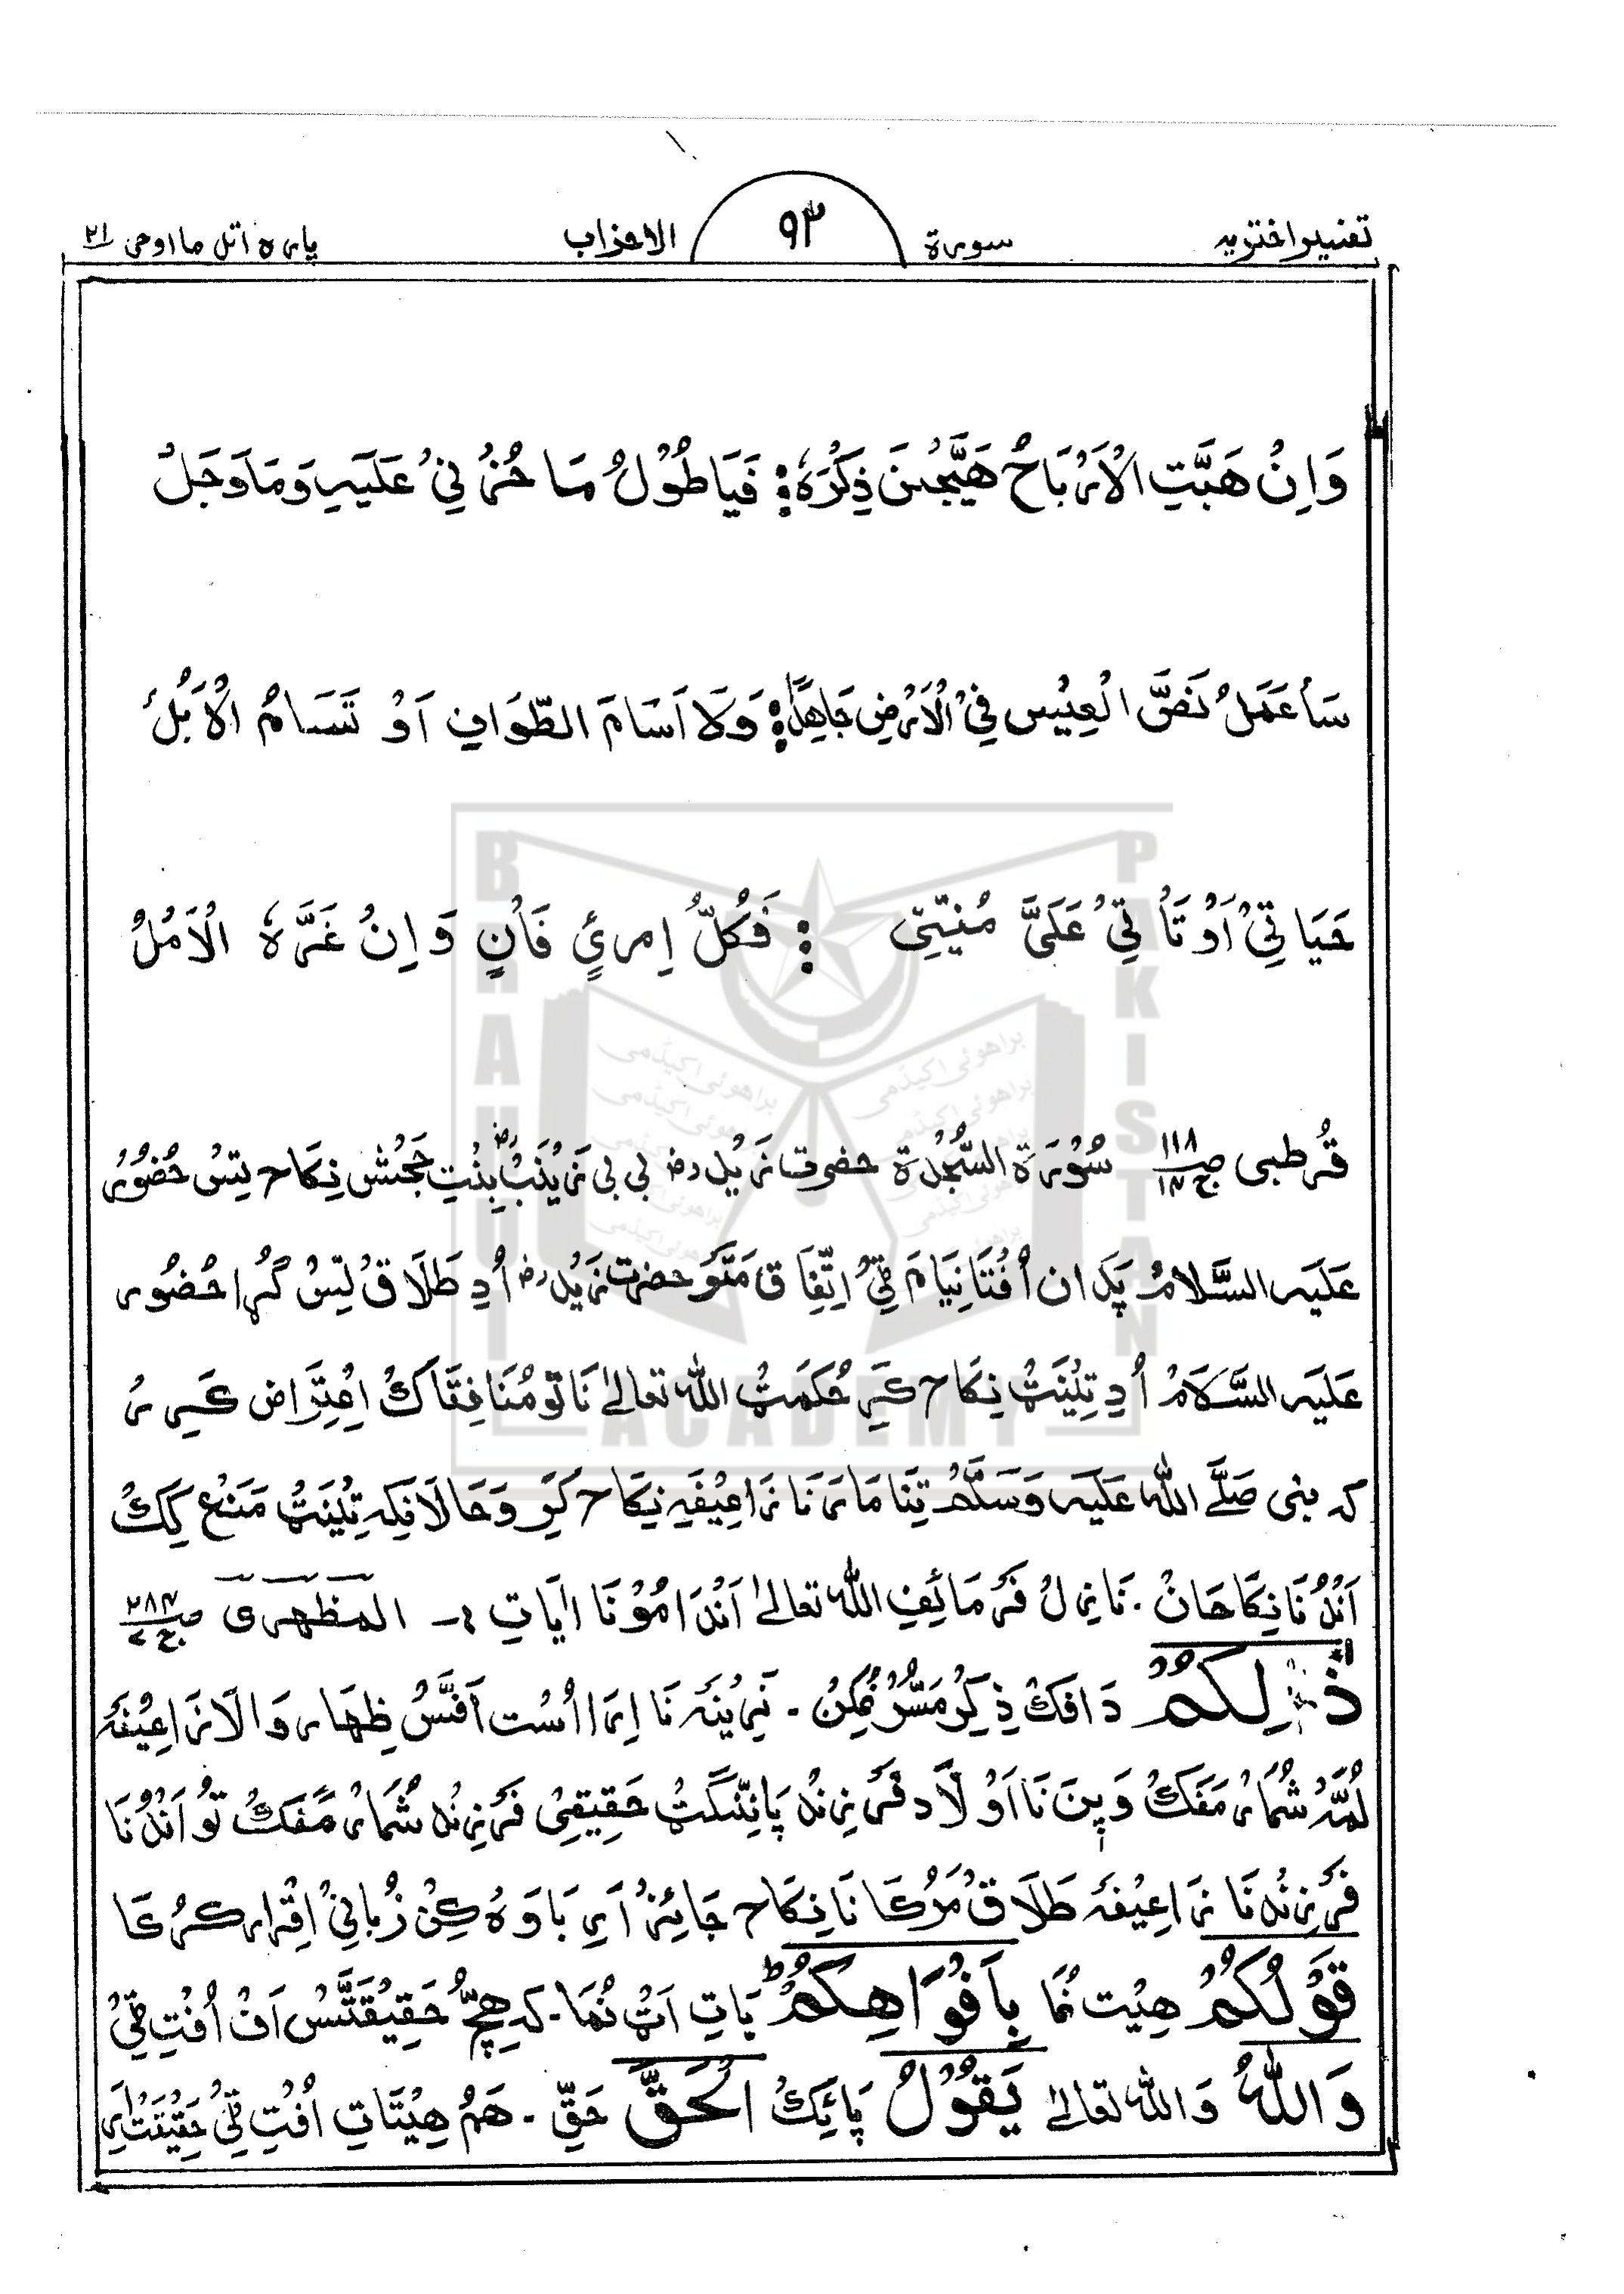 تفسیر اختریہ سورة ٩٣ الاحزاب پارہ اتل ما اوحی ٢١
وَاِنْ هَبَّتِ الْاَرْبَاحُ هَيَّجْنَ ذِكْرَهٗ : فَيَا طُوْلُ مَا حُزْنِيْ عَلَيْهِ وَمَا وَجَلْ
سَأُعْمِلُ نَصَّ الْعِيْسِ فِيْ الْاَرْضِ جَاهِدًا : وَلَا اَسَامَ الطَّوَافِ اَوْ تَسَامُ الْاِبْلُ
حَيَاتِيْ اَوْ تَأْتِيْ عَلَيَّ مُنِيَّتِيْ : فَكُلُّ اِمرِئٍ فَاْنٍ وَاِنْ غَرَّهٗ الْاَمْلُ
قُرطبی صـ ١١٨ ج ١٤ سُوْرَة السَّجْدَة حضرت زَیْد رض بی بی زَیْنَبْ رض بِنْتِ جَحْش نِکَاح تِسْ حُضُوْر
عَلَیْہِ السَّلَامْ پَد ان اُفْتَا نِیَام ٹِیْ اِتِّفَاق مَتَوْ حضرت زَیْد رض اُدِ طَلَاقْ تِسْ گُڑا حُضُور
عَلَیْہِ السَّلَامْ اُدِ تِیْنَٹْ نِکَاح کَرِ حُکمَٹْ اللہ تعالیٰ نَا تَوْ مُنَافِقَاکْ اِعْتِرَاض کَرِرْ
کہ نبی صَلَّے اللہ عَلَیہِ وَسَلَّمْ تِنَا مَارْنَا زَاعِیْفَہِ نِکَاح کَرِ وَحَالَانکِہ تِیْنَٹْ مَنْع کِکْ
اَنْدُنَا نِکَاحَانْ۔ نَازِلْ فَرْمَائِفِ اللہ تعالیٰ اَنْدَا مُوْنَا اٰیَاتِ ۔ المظہری صـ ٢٨٤ ج ٧
ذٰلِکُمْ دَافکْ ذِکِرْ مَسُّرْ نُمکِنْ ۔ نَرِیْنَہ نَا اِرَا اُسْت اَفَسْ ظِهَار وَالَا زَاعِیْفَہ
لُمَّہ شُمَارْ مَفَکْ وَ پِنَ نَا اَوْلَاد فَرْزِنْد پَانِنَّگَٹْ حَقِیقِیْ فَرْزِنْد شُمَارْ مَفَکْ تَوْ اَنْدُنَا
فَرْزِنْد نَا زَاعِیْفَہ طَلَاقْ مَرْکَا نَا نِکَاح جَائِزْ اَرِ بَاوَہ کِنْ زُبَانِیْ اِقْرَار کرُکَا
قَوْلُکُمْ هِیْت نُمَا بِاَفْوَاهِکُمْ ط بَاتِ اَٹْ نُمَا۔ کہ هِچّ حَقِیْقَتَّسْ اَفْ اُفْتِ ٹِیْ
وَاللّٰہُ وَاللہ تعالیٰ یَقُوْلُ پَائِکْ الْحَقَّ حَقِّ ۔ هَمُ هِیْتَاتِ اُفْتِ ٹِیْ حَقِیْقَتْ اَرِ
BRAHUI
ACADEMY
PAKISTAN
براھوئی اکیڈمی